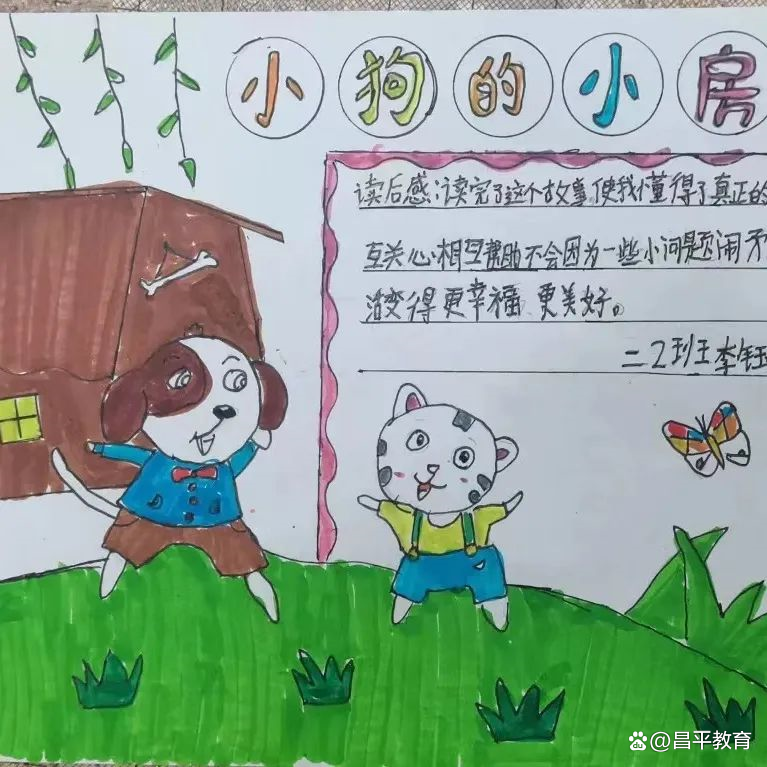 小狗的小房
读后感:读完了这个故事,使我懂得了真正的
互关心,相互帮助不会因为一些小问题闹矛
活变得更幸福、更美好。
二2班王李钰
Baidu @昌平教育